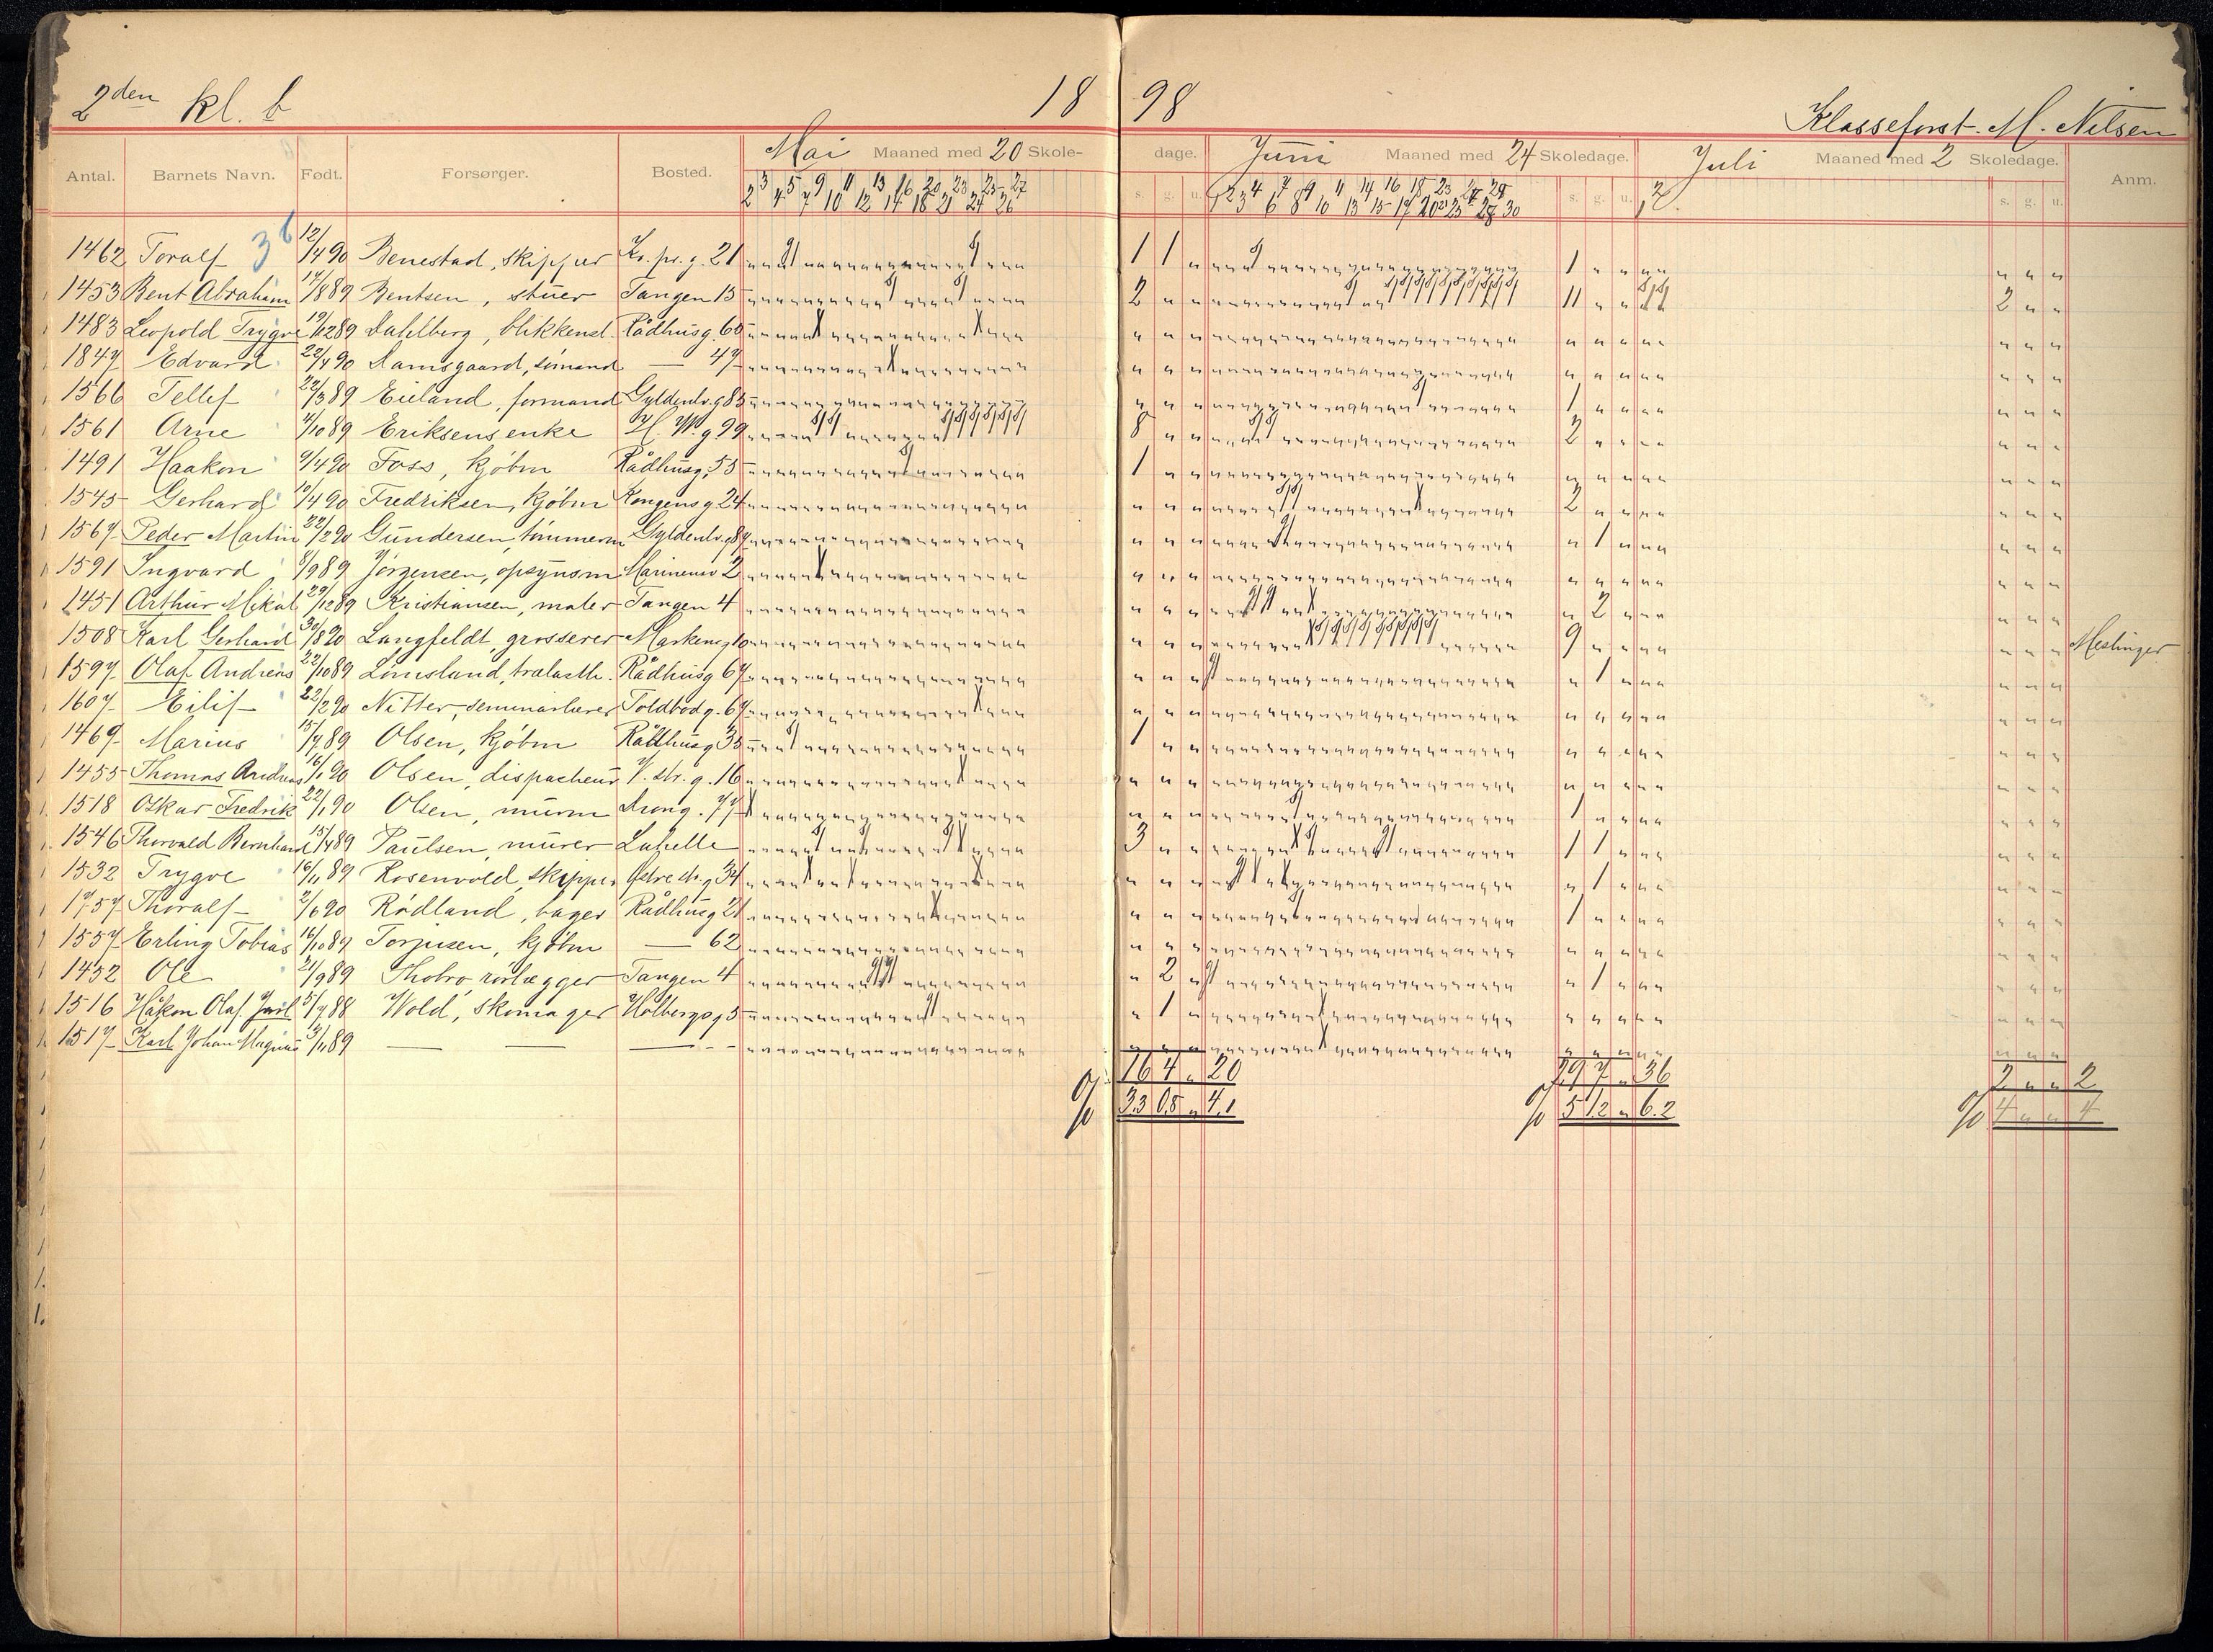 2den kl. b 18 98 Klasseforst. M. Nilsen
Antal. Barnets Navn. Født. Forsørger. Bosted. Mai Maaned med 20 Skole- dage. Juni Maaned med 24 Skoledage. Juli Maaned med 2 Skoledage. Anm.
2 3 4 5 7 9 10 11 12 13 14 16 18 20 21 23 24 25 26 27 s. g. u. 1 2 3 4 6 7 8 9 10 11 13 14 15 16 17 18 20 21 23 25 27 28 29 30 s. g. u. 1 2 s. g. u.
36
1462 Toralf 12/4 90 Benestad, skipper Kr. pr. g. 21 1 1 " 1 " " " " "
1453 Bent Abraham 14/8 89 Bentsen, stuer Tangen 15 2 " " 11 " " 2 " "
1483 Leopold Trygve 19/12 89 Dahlberg, blikkensl. Rådhusg. 60 " " " " " " " " "
1847 Edvard 22/4 90 Damsgaard, sömand — 47 " " " " " " " " "
1566 Tellef 22/3 89 Eieland, formand Gyldenlv. g 85 " " " 1 " " " " "
1561 Arne 4/10 89 Eriksens enke H. W. g 99 8 " " 2 " " " " "
1491 Haakon 9/4 90 Foss, kjöbm Rådhusg. 55 1 " " " " " " " "
1545 Gerhard 10/4 90 Fredriksen, kjöbm Kongensg 24 " " " 2 " " " " "
1567 Peder Martin 22/2 90 Gundersen, tömmerm Gyldenlv. g 87 " " " " 1 " " " "
1591 Ingvard 8/9 89 Jörgensen, opsynsm Marinensv 2 " " " " " " " " "
1451 Arthur Mikal 29/12 89 Kristiansen, maler Tangen 4 " " " " 2 " " " "
1508 Karl Gerhard 30/8 90 Langfeldt, grosserer Markensg 10 " " " 9 " " " " " Meslinger
1597 Olaf Andreas 22/10 89 Lömsland, trælasth. Rådhusg 67 " " " " 1 " " " "
1607 Eilif 22/2 90 Nitter, seminarlærer Toldbodg. 67 " " " " " " " " "
1469 Marius 15/7 89 Olsen, kjöbm Rådhusg 35 1 " " " " " " " "
1455 Thomas Andreas 16/1 90 Olsen, dispacheur V. str. g. 16 " " " " " " " " "
1518 Oskar Fredrik 22/1 90 Olsen, murm Drong. 77 " " " 1 " " " " "
1546 Thorvald Bernhard 15/4 89 Paulsen, murer Lahelle 3 " " 1 1 " " " "
1532 Trygve 16/11 89 Rosenvold, skipper Østre str. g 34 " " " " 1 " " " "
1757 Thoralf 2/6 90 Rödland, bager Rådhusg 21 " " " 1 " " " " "
1557 Erling Tobias 16/10 89 Torjusen, kjöbm — 62 " " " " " " " " "
1432 Ole 21/9 89 Thobro, rörlægger Tangen 4 " 2 " " 1 " " " "
1516 Håkon Olaf Jarl 5/7 88 Wold, skomager Holbergsg 5 " 1 " " " " " " "
1517 Karl Johan Magnus 3/11 89 — — — " " " " " " " " "
16 4 " 20 29 7 " 36 2 " " 2
% 3.3 0,8 " 4,1 % 5 1.2 " 6.2 % 4 " " 4